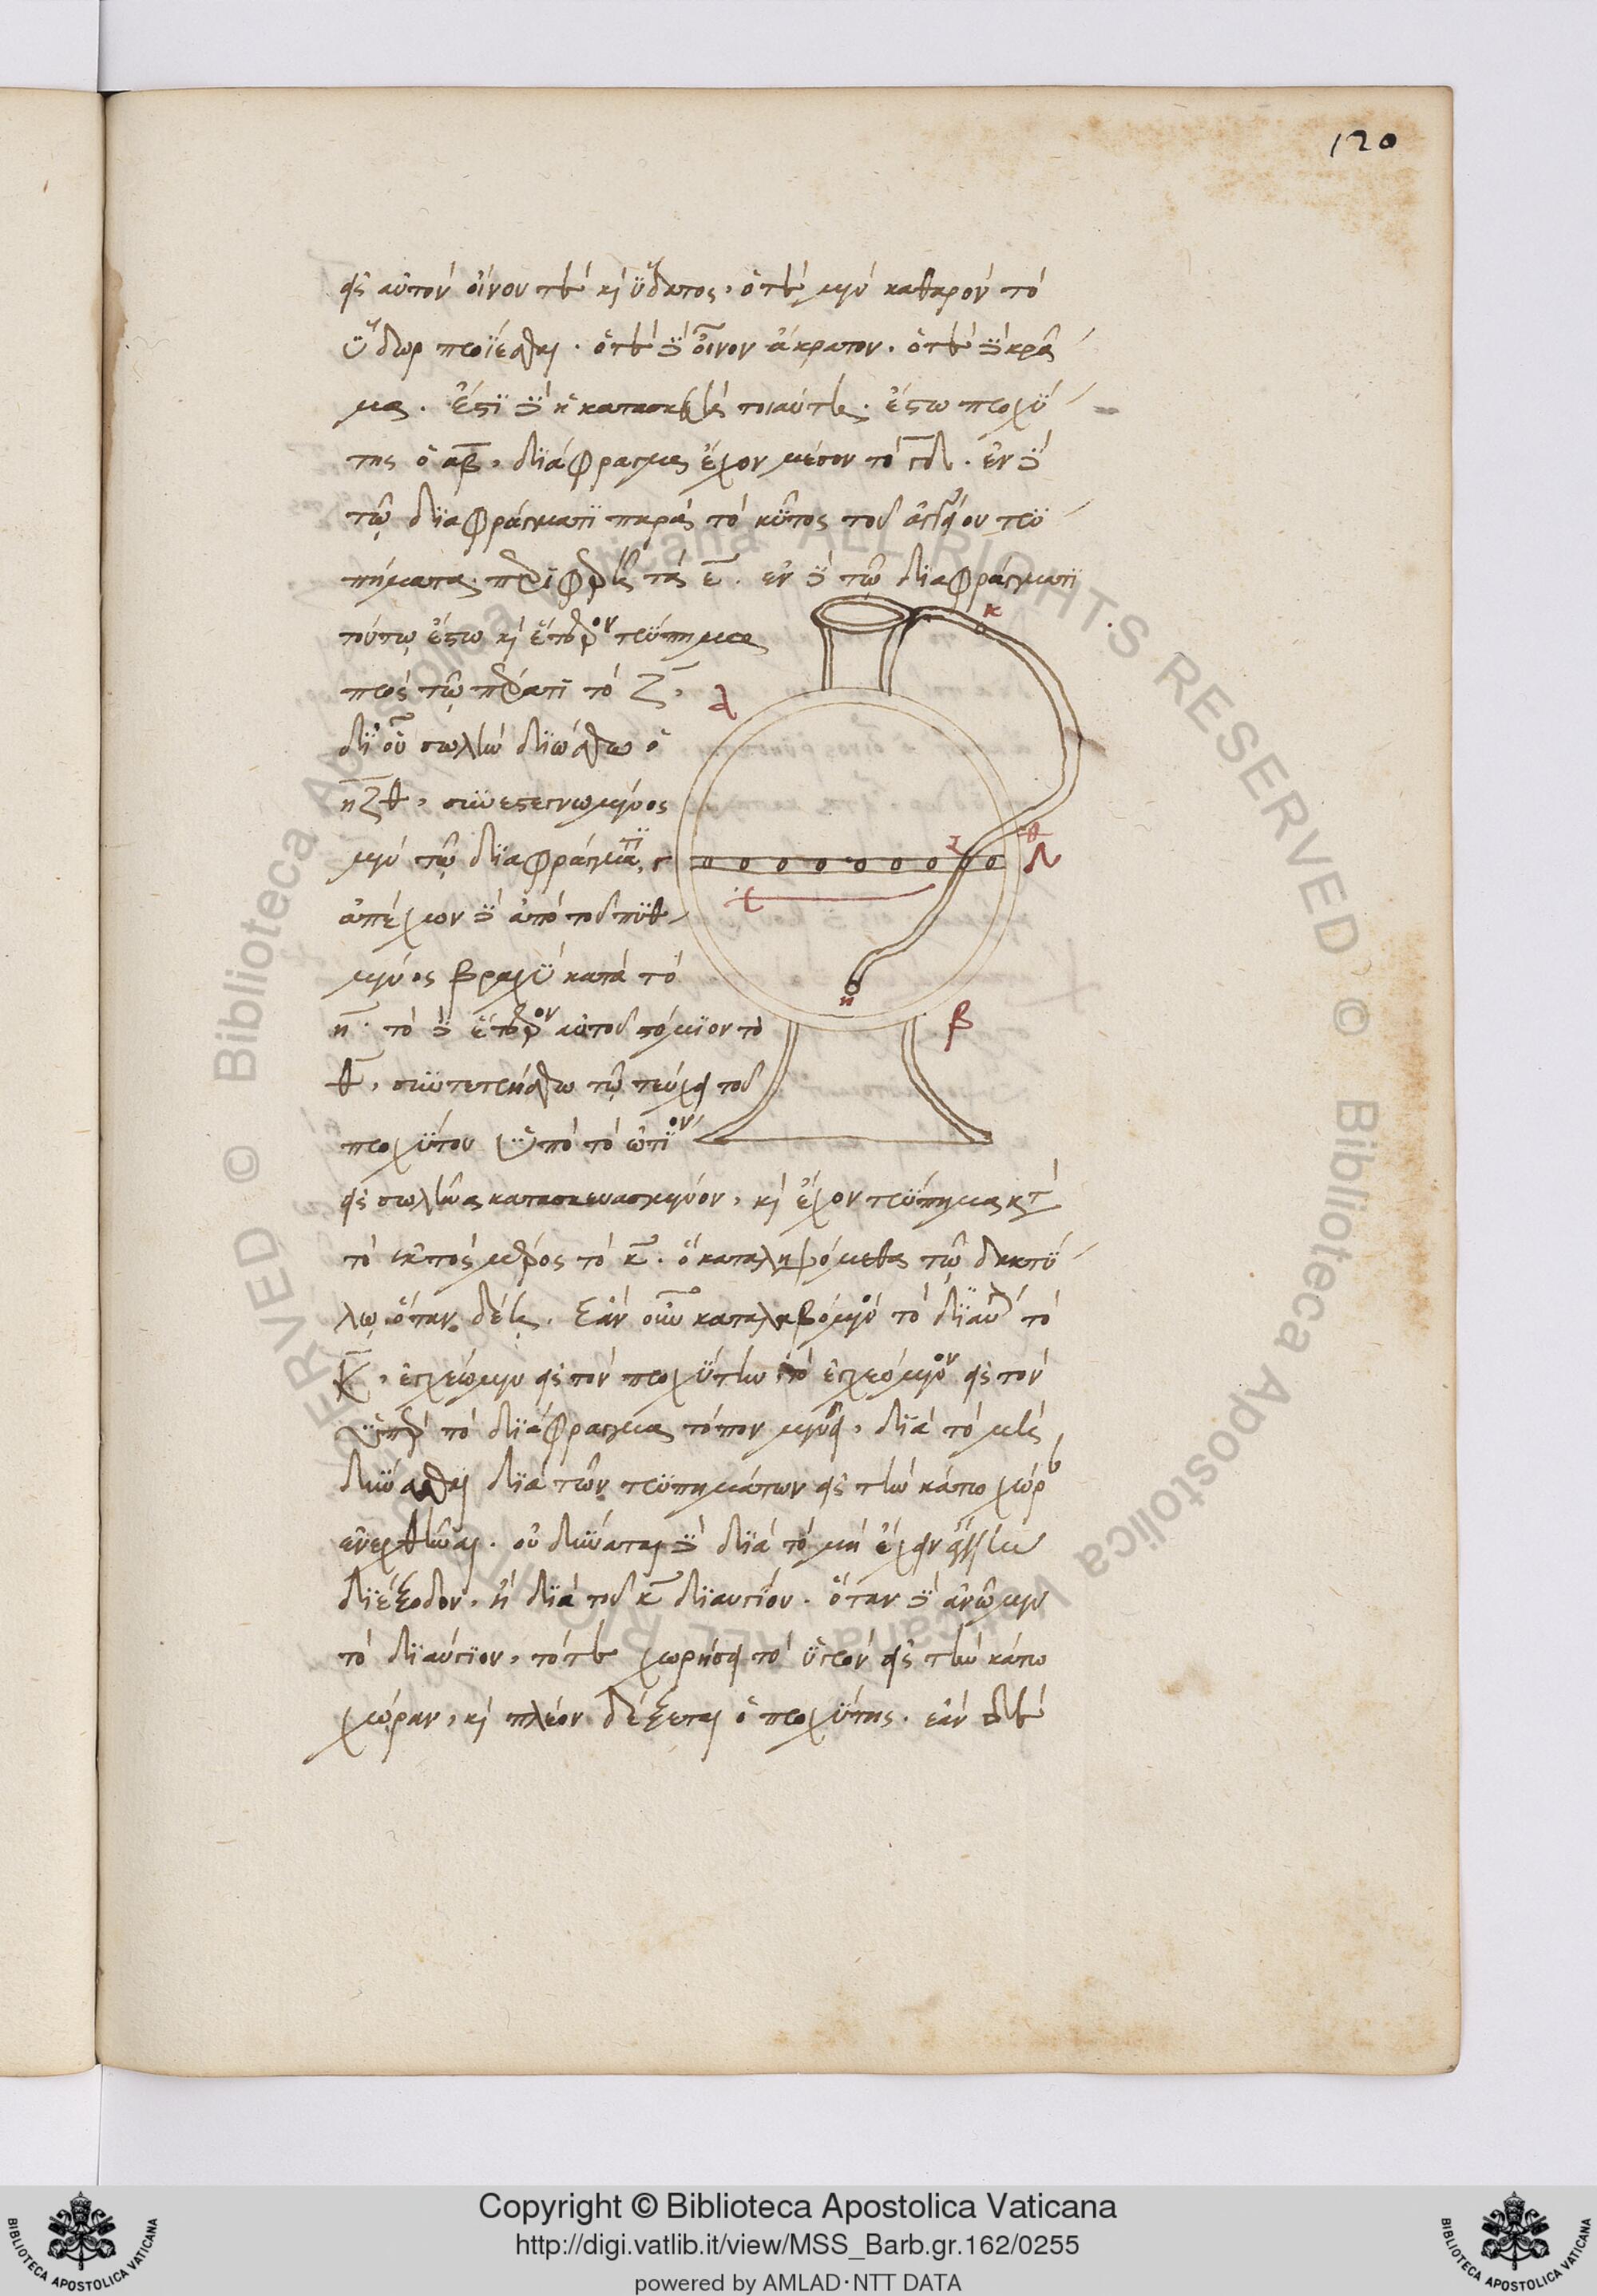 120
εἰς αὐτὸν οἴνου τε καὶ ὕδατος, ὁτὲ μὲν καθαρὸν τὸ
ὕδωρ προΐεσθαι. ὁτὲ δὲ οἶνον ἄκρατον. ὁτὲ δὲ κρᾶ
μα. ἔστι δὲ ἡ κατασκευὴ τοιαύτη. ἔστω προχύ
της ὁ αβ, διάφραγμα ἔχον μέσον τὸ γδ. ἐν δὲ
τῷ διαφράγματι παρὰ τὸ κύτος τοῦ ἀγγείου τρυ
πήματα περιφερῆ τὰ ε. ἐν δὲ τῷ διαφράγματι
τούτῳ ἔστω καὶ ἕτερον τρύπημα
πρὸς τῷ πέρατι τὸ ζ,
δι' οὗ σωλὴν διώσθω ὁ
ηζθ, συνεστεγνωμένος
μὲν τῷ διαφράγματι,
ἀπέχων δὲ ἀπὸ τοῦ πυθ
μένος βραχὺ κατὰ τὸ
η. τὸ δὲ ἕτερον αὐτοῦ στόμιον τὸ
θ, συντετρήσθω τῷ τεύχει τοῦ
προχύτου ὑπὸ τὸ ὠτίον
εἰς σωλῆνα κατασκευασμένον, καὶ ἔχον τρύπημα κατὰ
τὸ ἐκτὸς μέρος τὸ κ. ὃ καταληψόμεθα τῷ δακτύ
λῳ ὅταν δέῃ. Ἐὰν οὖν καταλαβόμενοι τὸ διαύγιον τὸ
κ, ἐγχέωμεν εἰς τὸν προχύτην τὸ ἐγχεόμενον εἰς τὸν
ὑπὲρ τὸ διάφραγμα τόπον μένει, διὰ τὸ μὴ
δύνασθαι διὰ τῶν τρυπημάτων εἰς τὴν κάτω χώραν
ἐνεχθῆναι. οὐ δύναται δὲ διὰ τὸ μὴ ἔχειν ἄλλην
διέξοδον, ἢ διὰ τοῦ κ διαυγίου. ὅταν δὲ ἀνῶμεν
τὸ διαύγιον, τότε χωρήσει τὸ ὑγρὸν εἰς τὴν κάτω
χώραν, καὶ πλέον δέξεται ὁ προχύτης. ἐὰν δὲ
κ
α
θ
ζ
γ
δ
ε
η
β
Copyright © Biblioteca Apostolica Vaticana
http://digi.vatlib.it/view/MSS_Barb.gr.162/0255
powered by AMLAD·NTT DATA
BIBLIOTECA APOSTOLICA VATICANA
BIBLIOTECA APOSTOLICA VATICANA
© Biblioteca Apostolica Vaticana ALL RIGHTS RESERVED © Biblioteca Apostolica Vaticana ALL RIGHTS RESERVED